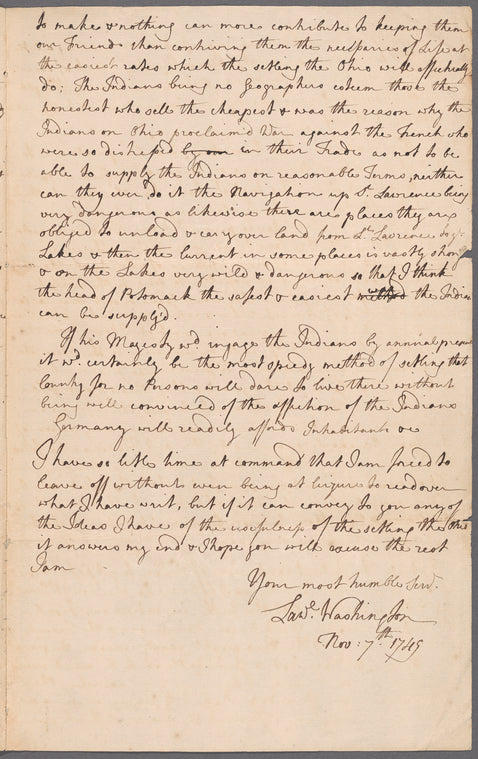 to make & nothing can more contribute to keeping them
our Friends than contriving them the necessaries of Life at
the easiest rates which the setling the Ohio will effectually
do; The Indians being no Geographers esteem those the
honestest who sell the cheapest & was the reason why the
Indians on Ohio proclaim'd War against the French who
were so distress'd by our in their Trade as not to be
able to supply the Indians on reasonable Terms, neither
can they ever do it the Navigation up St. Lawrence being
very dangerous as likewise there are places they are
obliged to unload & carry over land from St. Lawrence to ye
Lakes & then the Current in some places is vastly strong
& on the Lakes very wild & dangerous so that I think
the head of Potomack the safest & easiest the Indians
can be supply'd.
If his Majesty wd. ingage the Indians by annual presents
it wd. certainly be the most speedy method of setling that
County for no Persons will dare to live there without
being well convinced of the affection of the Indians
Germany will readily afford Inhabitants
I have so little time at command that I am forced to
leave off without even being at leizure to read over
what I have writ, but if it can convey to you any of
the Ideas I have of the usefulness of the setling the Ohio
it answers my end & I hope you will excuse the rest
I am
Your most humble Serv.
Lawe. Washington
Nov: 7th. 1749